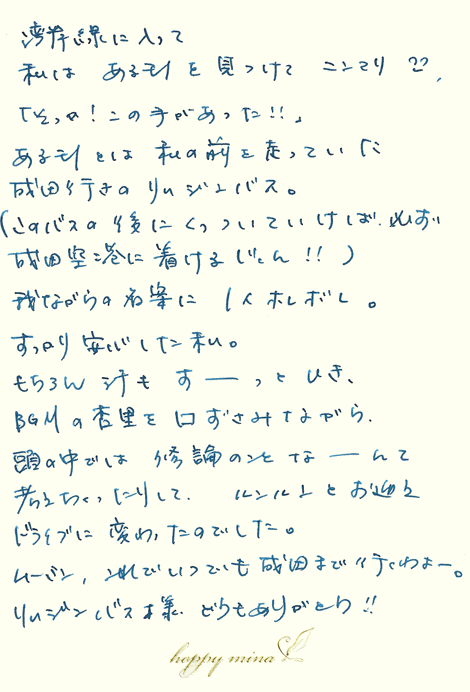 湾岸線に入って
私は ある物を見つけて ニンマリ
「そっか！この手があった!!」
ある物とは 私の前を走っていた
成田行きのリムジンバス。
(このバスの後にくっついていけば、必ず
成田空港に着けるじゃん!!)
我ながらの名案に 1人ホレボレ。
すっかり安心した私。
もちろん 汗も すーっとひき、
BGMの杏里を口ずさみながら、
頭の中では 修論のことなーんて
考えちゃったりして、ルンルンとお迎え
ドライブに変わったのでした。
ムーン、これでいつでも成田まで行くわよー。
リムジンバス様、どうもありがとう!!
happy mina